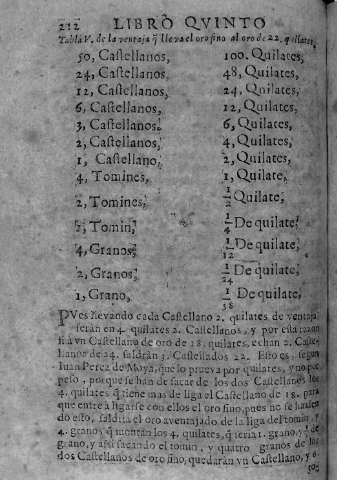 212 LIBRO QVINTO
Tabla V. de la ventaja q̃ lleva el oro fino al oro de 22. quilates.
50, Castellanos, 100. Quilates,
24, Castellanos, 48, Quilates,
12, Castellanos, 24, Quilates,
6, Castellanos, 12, Quilates,
3, Castellanos, 6, Quilates,
2, Castellanos, 4, Quilates,
1, Castellano, 2, Quilates,
4, Tomines, 1, Quilate,
2, Tomines, 1/2 Quilate,
1, Tomin, 1/4 De quilate,
4, Granos, 1/12 De quilate,
2, Granos, 1/24 De quilate,
1, Grano, 1/48 De quilate,
PVes llevando cada Castellano 2. quilates de ventaja
seràn en 4. quilates 2. Castellanos, y por esta razon
si à vn Castellano de oro de 18. quilates, echan 2. Caste-
llanos de 24. saldràn 3. Castellanos 22. Esto es, segun
Iuan Perez de Moya, que lo prueva por quilates, y no por
peso, porque se han de sacar de los dos Castellanos los
4. quilates q̃ tiene mas de liga el Castellano de 18. para
que entre à ligarse con ellos el oro fino, pues no se haziendo
esto, saldria el oro aventajado de la liga del tomin, y
4. grano, q̃ montan los 4. quilates, q̃ seria 1. grano, y de
grano, y assi sacando el tomin, y quatro granos de los
dos Castellanos de oro fino, quedaràn vn Castellano, y